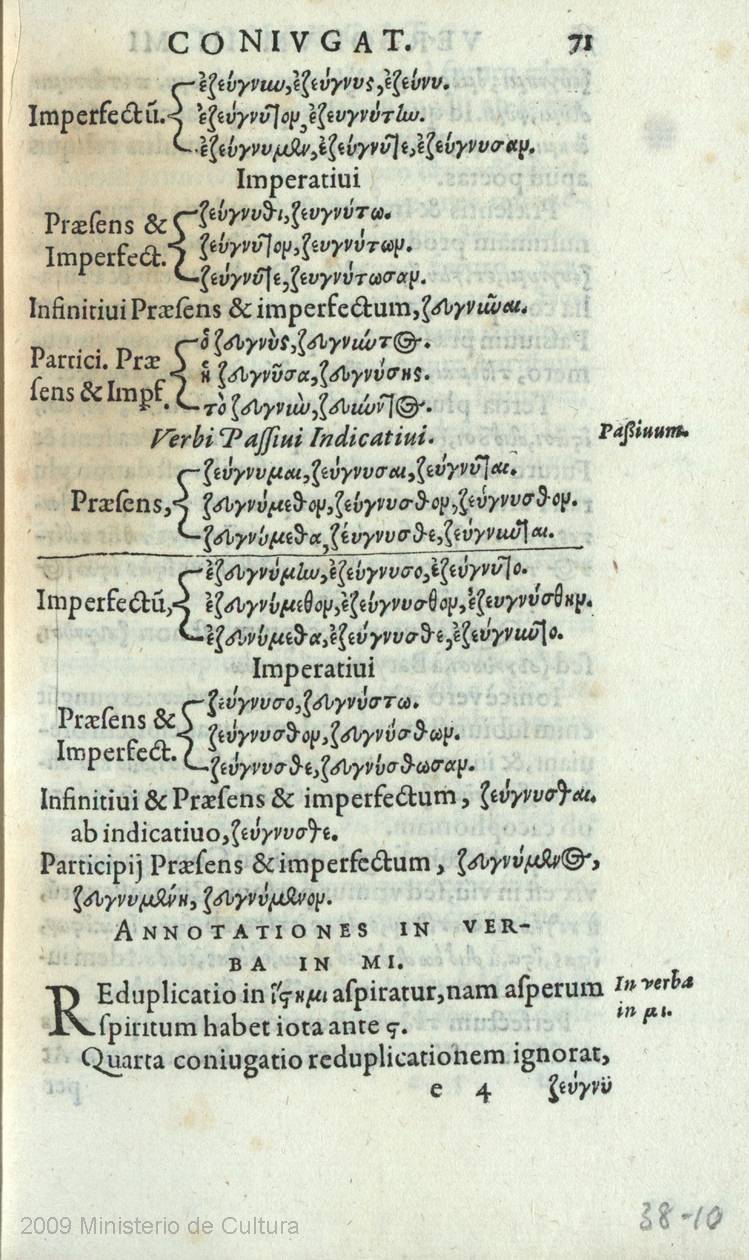 CONIVGAT. 71
ἐζεύγνυν, ἐζεύγνυς, ἐζεύνυ.
Imperfectū. ἐζεύγνυτον, ἐζευγνύτην.
ἐζεύγνυμεν, ἐζεύγνυτε, ἐζεύγνυσαν.
Imperatiui
ζεύγνυθι, ζευγνύτω.
Præsens &
ζεύγνυτον, ζευγνύτων.
Imperfect.
ζεύγνυτε, ζευγνύτωσαν.
Infinitiui Præsens & imperfectum, ζευγνύναι.
ὁ ζευγνὺς, ζευγνύντος.
Partici. Præ
ἡ ζευγνῦσα, ζευγνύσης.
sens & Impf.
τὸ ζευγνὺν, ζευύντος.
Verbi Passiui Indicatiui. Paßiuum.
ζεύγνυμαι, ζεύγνυσαι, ζεύγνυται.
Præsens, ζευγνύμεθον, ζεύγνυσθον, ζεύγνυσθον.
ζευγνύμεθα, ζέυγνυσθε, ζεύγνυνται.
ἐζευγνύμην, ἐζεύγνυσο, ἐζεύγνυτο.
Imperfectū, ἐζευγνύμεθον, ἐζεύγνυσθον, ἐζευγνύσθην.
ἐζευνύμεθα, ἐζεύγνυσθε, ἐζεύγνυντο.
Imperatiui
ζεύγνυσο, ζευγνύστω.
Præsens &
ζεύγνυσθον, ζευγνύσθων.
Imperfect.
ζεύγνυσθε, ζευγνύσθωσαν.
Infinitiui & Præsens & imperfectum, ζεύγνυσθαι.
ab indicatiuo, ζεύγνυσθε.
Participij Præsens & imperfectum, ζευγνύμενος,
ζευγνυμένη, ζευγνύμενον.
ANNOTATIONES IN VER-
BA IN MI.
REduplicatio in ἵστημι aspiratur, nam asperum In verba
spiritum habet iota ante ϛ. in μι.
Quarta coniugatio reduplicationem ignorat,
e 4 ζεύγνϋ
2009 Ministerio de Cultura
38-10